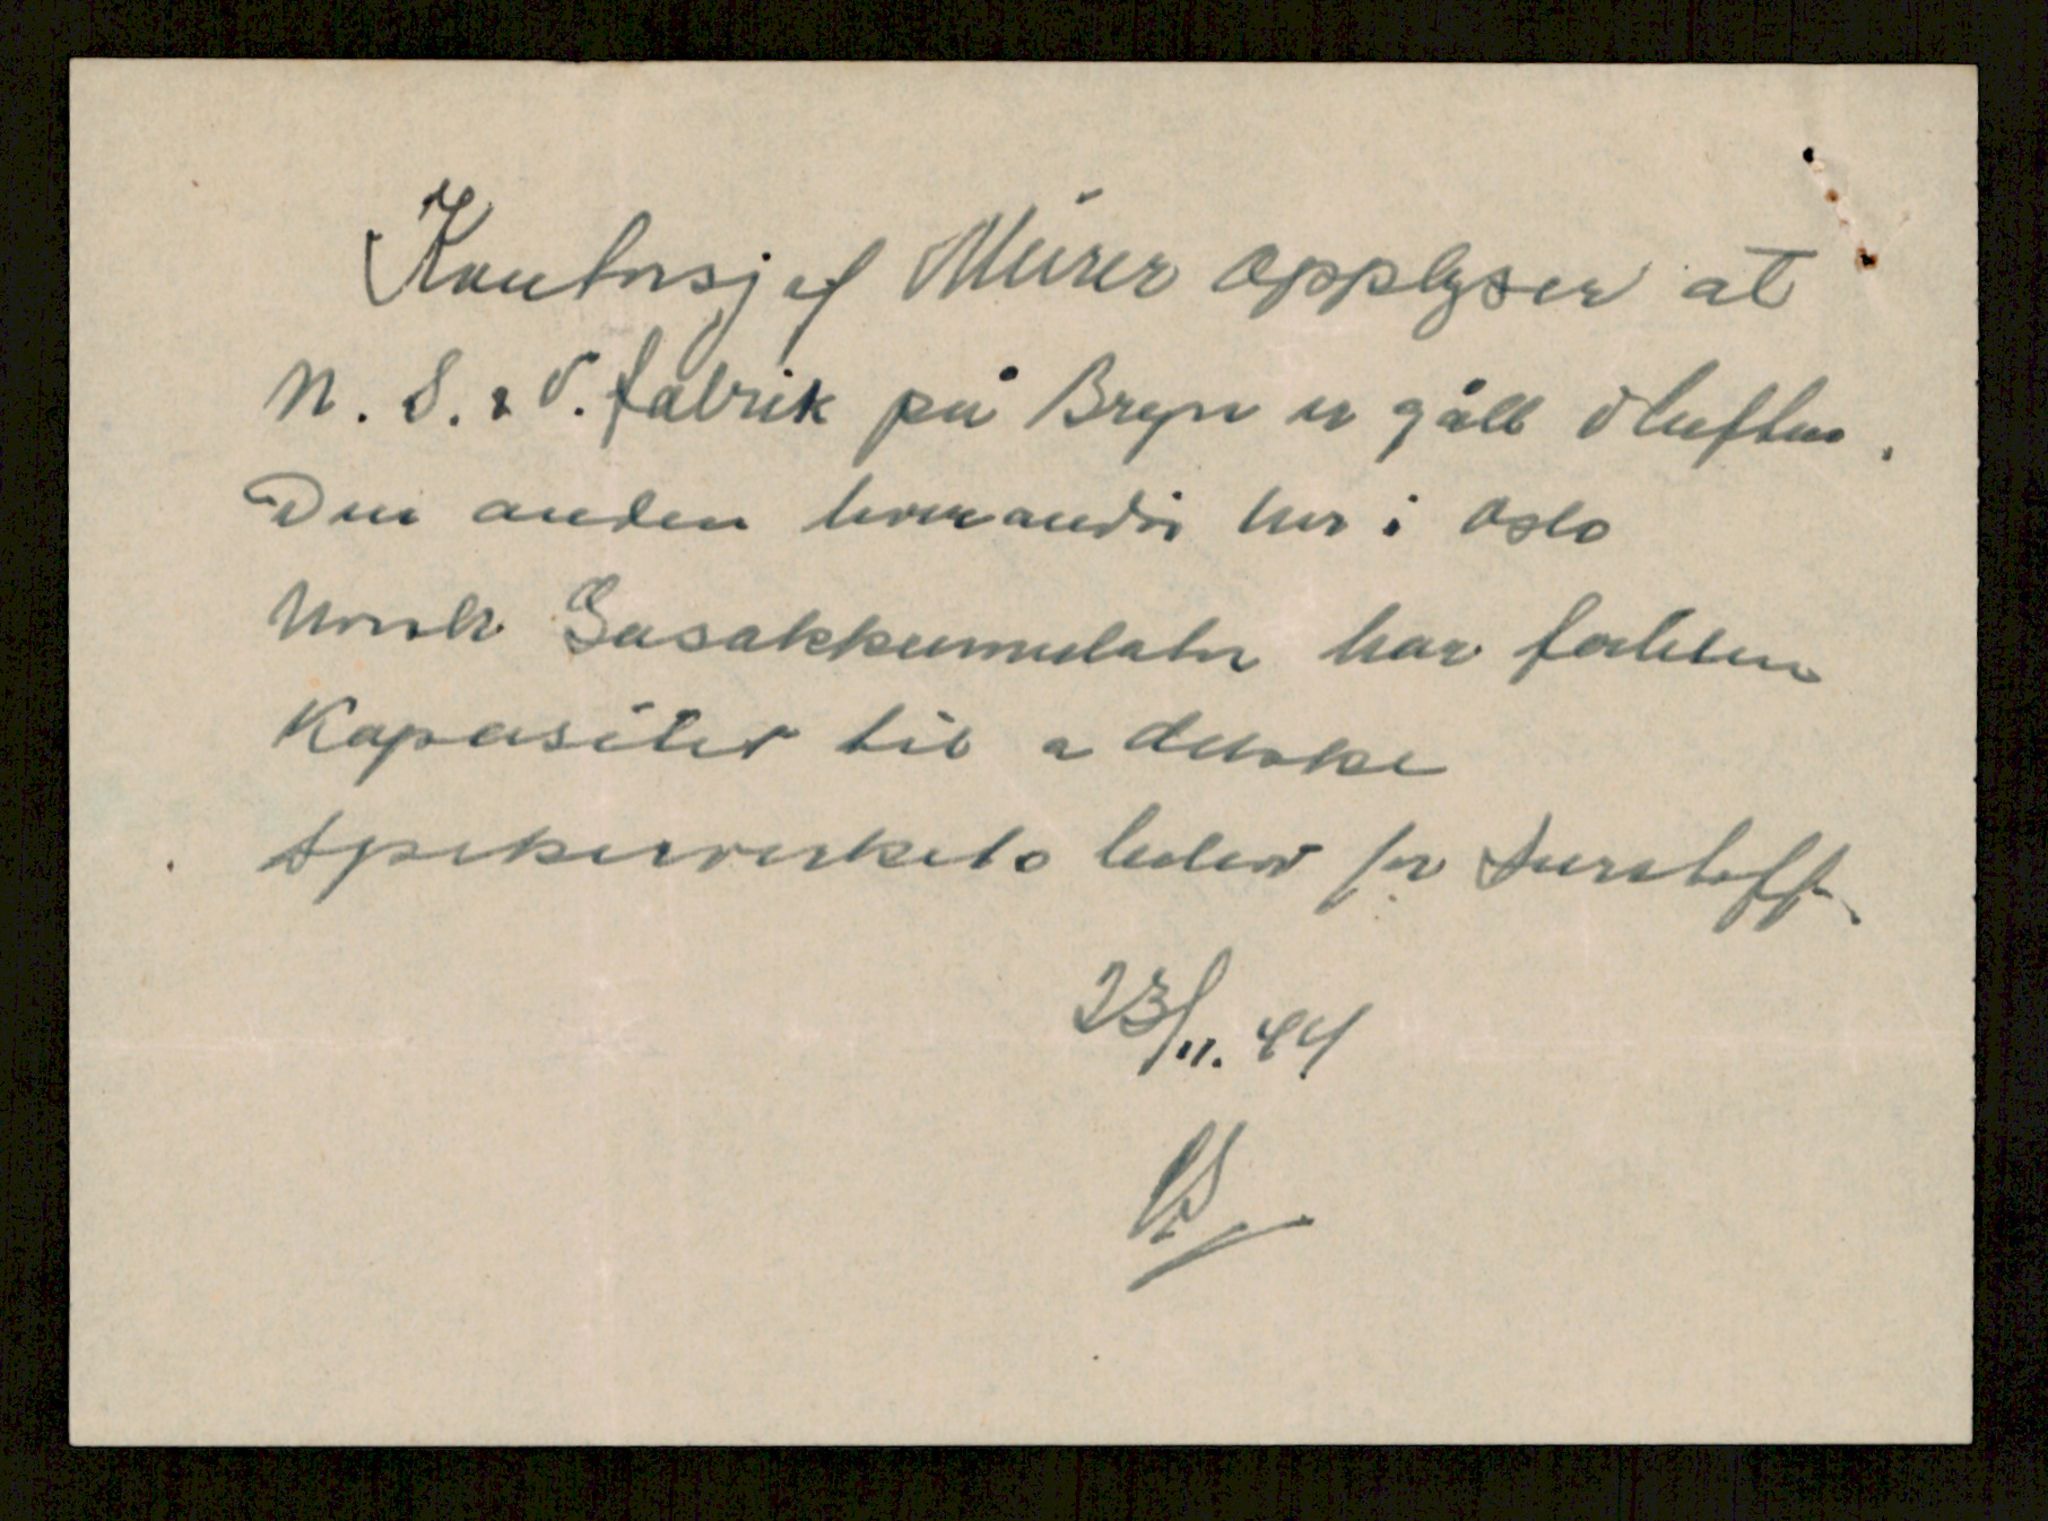 Kontorsjef Mürer opplyser at
N. S. & V. fabrik på Bryn er gått i luften.
Den anden leverandør her i Oslo
Norsk Gasakkumulator har
Kapasitet til a dekke
Spikerverkets behov for Surstoff.
23/11. 44